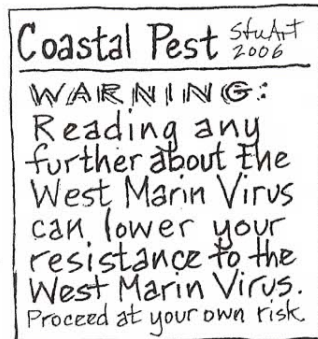 Coastal Pest StuArt
2006
WARNING:
Reading any
further about the
West Marin Virus
can lower your
resistance to the
West Marin Virus.
Proceed at your own risk